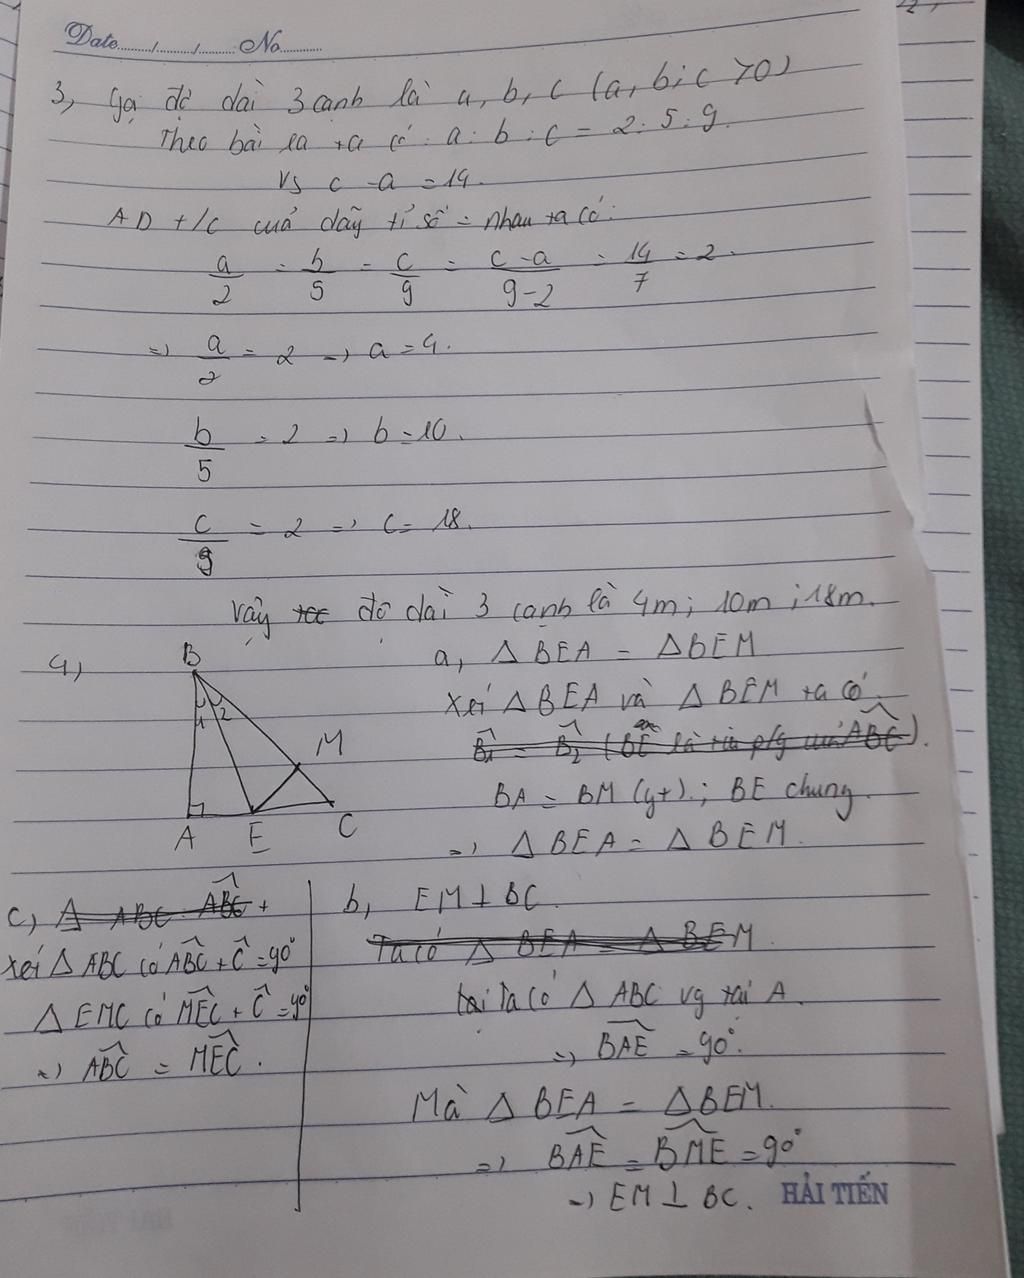 Date......./......./....... No.............
3, Gọi độ dài 3 cạnh là a, b, c (a, b; c > 0)
Theo bài ra ta có: a : b : c = 2 : 5 : 9.
Vs c - a = 14.
AD t/c cuả dãy tỉ số = nhau ta có:
a/2 = b/5 = c/9 = c-a/9-2 = 14/7 = 2.
=> a/2 = 2 => a = 4.
b/5 = 2 => b = 10.
c/9 = 2 => c = 18.
Vậy độ dài 3 cạnh là 4m; 10m; 18m.
4,
B
1 2
M
A E C
a, Δ BEA = Δ BEM
Xét Δ BEA và Δ BEM ta có
B̂1 = B̂2 (BE là tia p/g cuả ABC).
BA = BM (gt).; BE chung.
=> Δ BEA = Δ BEM.
b, EM ⊥ BC.
Ta có Δ BEA = Δ BEM.
Ta có Δ ABC vg tại A.
=> BAE = 90°.
Mà Δ BEA = Δ BEM.
=> BAE = BME = 90°
=> EM ⊥ BC.
c, Δ ABC ABC +
Xét Δ ABC có ABC + C = 90°
Δ EMC có MEC + C = 90°
=> ABC = MEC.
HẢI TIẾN